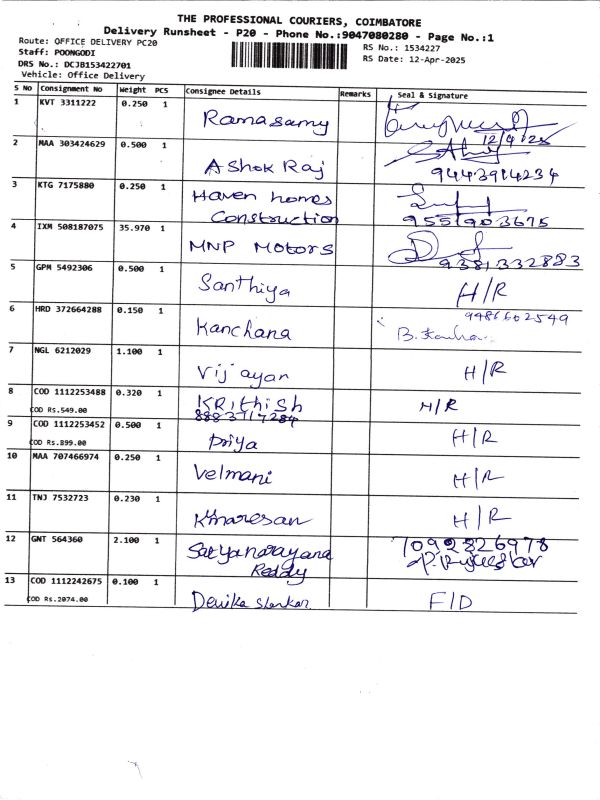 THE PROFESSIONAL COURIERS, COIMBATORE
Delivery Runsheet - P20 - Phone No.:9047080280 - Page No.:1
Route: OFFICE DELIVERY PC20
RS No.: 1534227
Staff: POONGODI
RS Date: 12-Apr-2025
DRS No.: DCJB153422701
Vehicle: Office Delivery
S No Consignment No Weight PCS Consignee Details Remarks Seal & Signature
1 KVT 3311222 0.250 1 Ramasamy
12/4/25
2 MAA 303424629 0.500 1 Ashok Raj
9443914234
3 KTG 7175880 0.250 1 Haven homes
Construction 9551903675
4 IXM 508187075 35.970 1 MNP Motors
9381332883
5 GPM 5492306 0.500 1 Santhiya H/R
6 HRD 372664288 0.150 1 Kanchana 9486602549
B.
7 NGL 6212029 1.100 1 Vijayan H/R
8 COD 1112253488 0.320 1 KRithish H/R
COD Rs.549.00 8883717284
9 COD 1112253452 0.500 1 Priya H/R
COD Rs.899.00
10 MAA 707466974 0.250 1 Velmani H/R
11 TNJ 7532723 0.230 1 Kmaresan H/R
12 GNT 564360 2.100 1 Satyanarayana 7092826978
Reddy
13 COD 1112242675 0.100 1 Devika Shankar F/D
COD Rs.2074.00